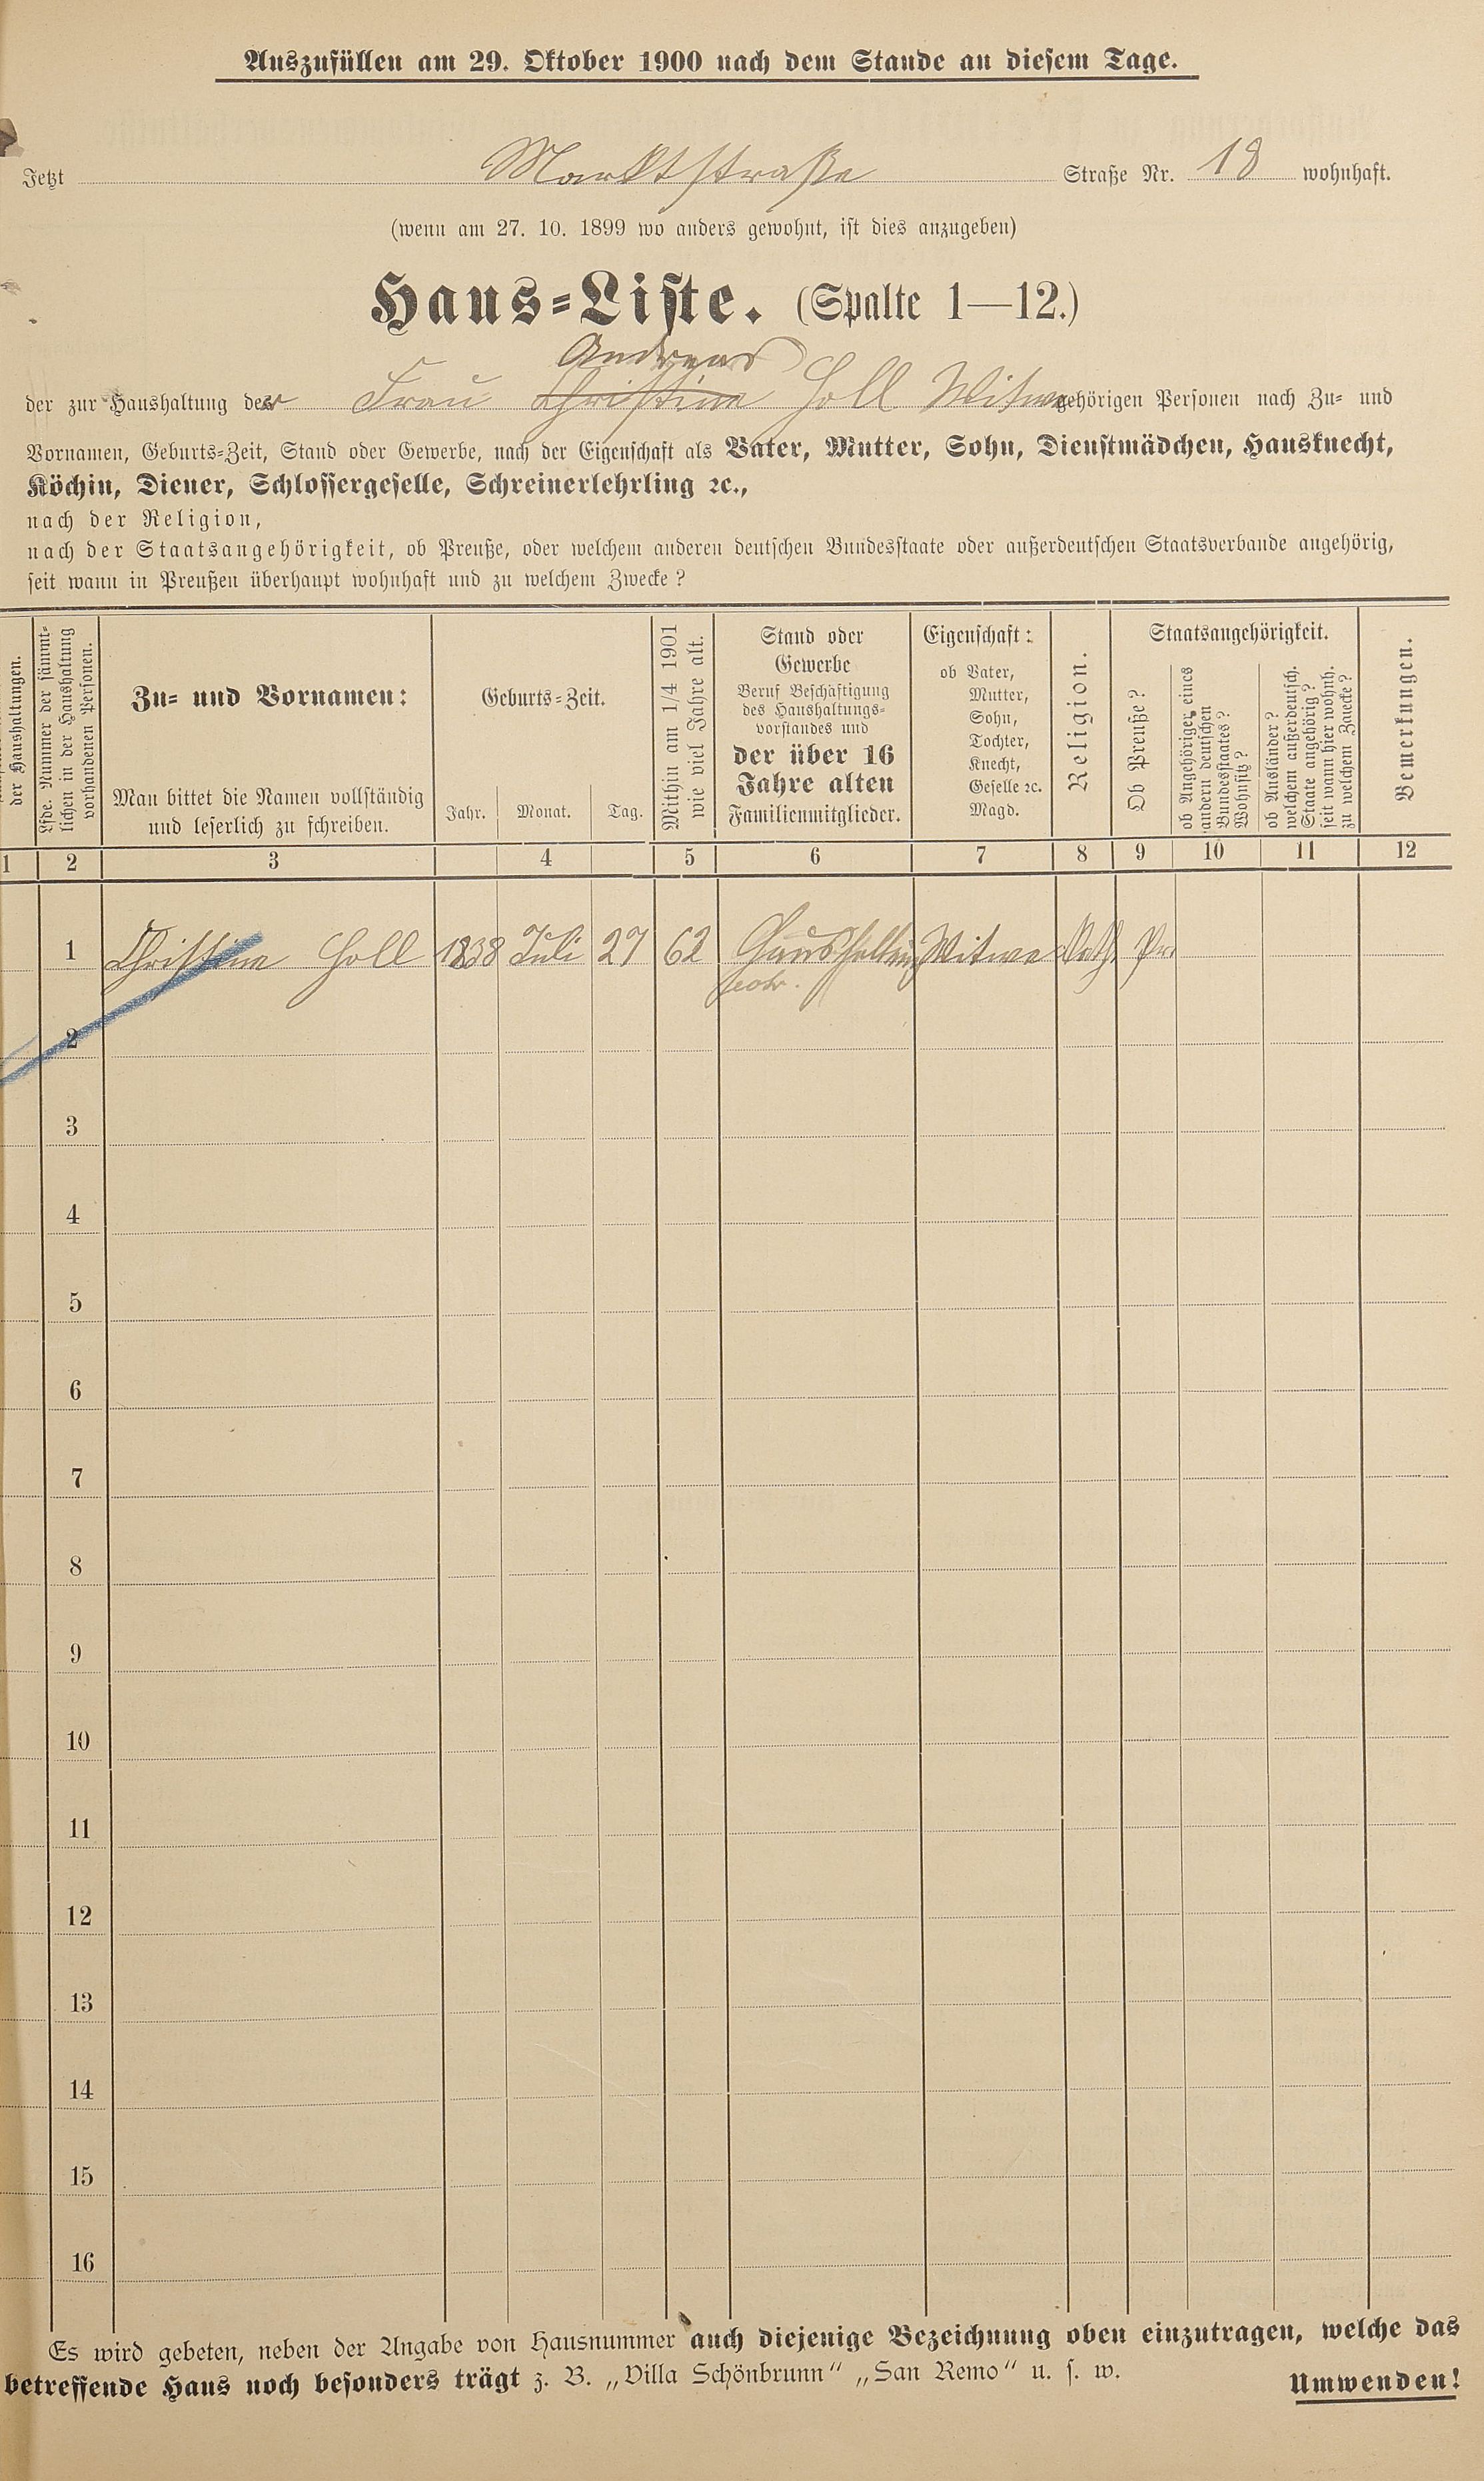 Auszufüllen am 29. Oktober 1900 nach dem Stande an diesem Tage.
Jetzt Marktstraße Straße Nr. 18 wohnhaft.
(wenn am 27. 10. 1899 wo anders gewohnt, ist dies anzugeben)
Haus-Liste. (Spalte 1—12.)
Andreas
der zur Haushaltung der Frau Christine Holl Witwe gehörigen Personen nach Zu- und
Vornamen, Geburts-Zeit, Stand oder Gewerbe, nach der Eigenschaft als Vater, Mutter, Sohn, Dienstmädchen, Hausknecht,
Köchin, Diener, Schlossergeselle, Schreinerlehrling ꝛc.,
nach der Religion,
nach der Staatsangehörigkeit, ob Preuße, oder welchem anderen deutschen Bundesstaate oder außerdeutschen Staatsverbande angehörig,
seit wann in Preußen überhaupt wohnhaft und zu welchem Zwecke?
der Haushaltungen.
Lfde. Nummer der sämmt-
lichen in der Haushaltung
vorhandenen Personen.
Zu- und Vornamen:
Man bittet die Namen vollständig
und leserlich zu schreiben.
Geburts-Zeit.
Jahr. Monat. Tag.
Mithin am 1/4 1901
wie viel Jahre alt.
Stand oder
Gewerbe
Beruf Beschäftigung
des Haushaltungs-
vorstandes und
der über 16
Jahre alten
Familienmitglieder.
Eigenschaft:
ob Vater,
Mutter,
Sohn,
Tochter,
Knecht,
Geselle ꝛc.
Magd.
Religion.
Staatsangehörigkeit.
Ob Preuße?
ob Angehöriger eines
andern deutschen
Bundesstaates?
Wohnsitz?
ob Ausländer?
welchem außerdeutsch.
Staate angehörig?
seit wann hier wohnh.
zu welchem Zwecke?
Bemerkungen.
1 2 3 4 5 6 7 8 9 10 11 12
1 Christine Holl 1838 Juli 27 62 Witwe Kath. Pr.
2
3
4
5
6
7
8
9
10
11
12
13
14
15
16
Es wird gebeten, neben der Angabe von Hausnummer auch diejenige Bezeichnung oben einzutragen, welche das
betreffende Haus noch besonders trägt z. B. „Villa Schönbrunn“ „San Remo“ u. s. w.
Umwenden!